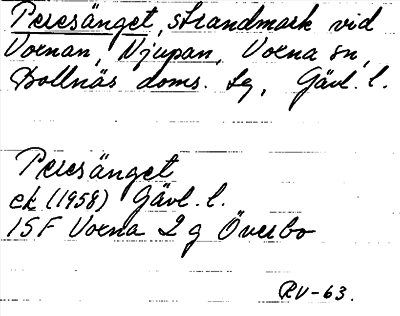 Persänget, strandmark vid
Voxnan, Njupan, Voxna sn,
Bollnäs doms. tg, Gävl. l.
Persänget
ek (1958) Gävl. l.
15F Voxna 2 g Överbo
RV-63.